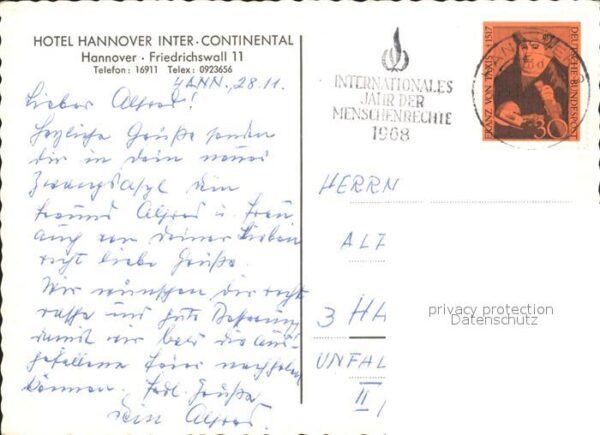 HOTEL HANNOVER INTER · CONTINENTAL
Hannover · Friedrichswall 11
Telefon: 16911 Telex: 0923656
HANN., 28.11.
Lieber Alfred!
Herzliche Grüße senden
dir in dein neues
Zwangsasyl dein
Freund Alfred u. Frau
auch von deiner lieben
recht liebe Grüße.
Wir wünschen dir recht
rasche und gute Besserung
damit wir bald die aus-
gefallene Feier nachholen
können. Herzl. Grüße
Dein Alfred.
INTERNATIONALES
JAHR DER
MENSCHENRECHTE
1968
FRANZ VON TAXIS †1517
DEUTSCHE BUNDESPOST
30
HERRN
ALF
3 HA
UNFAL
II
privacy protection
Datenschutz